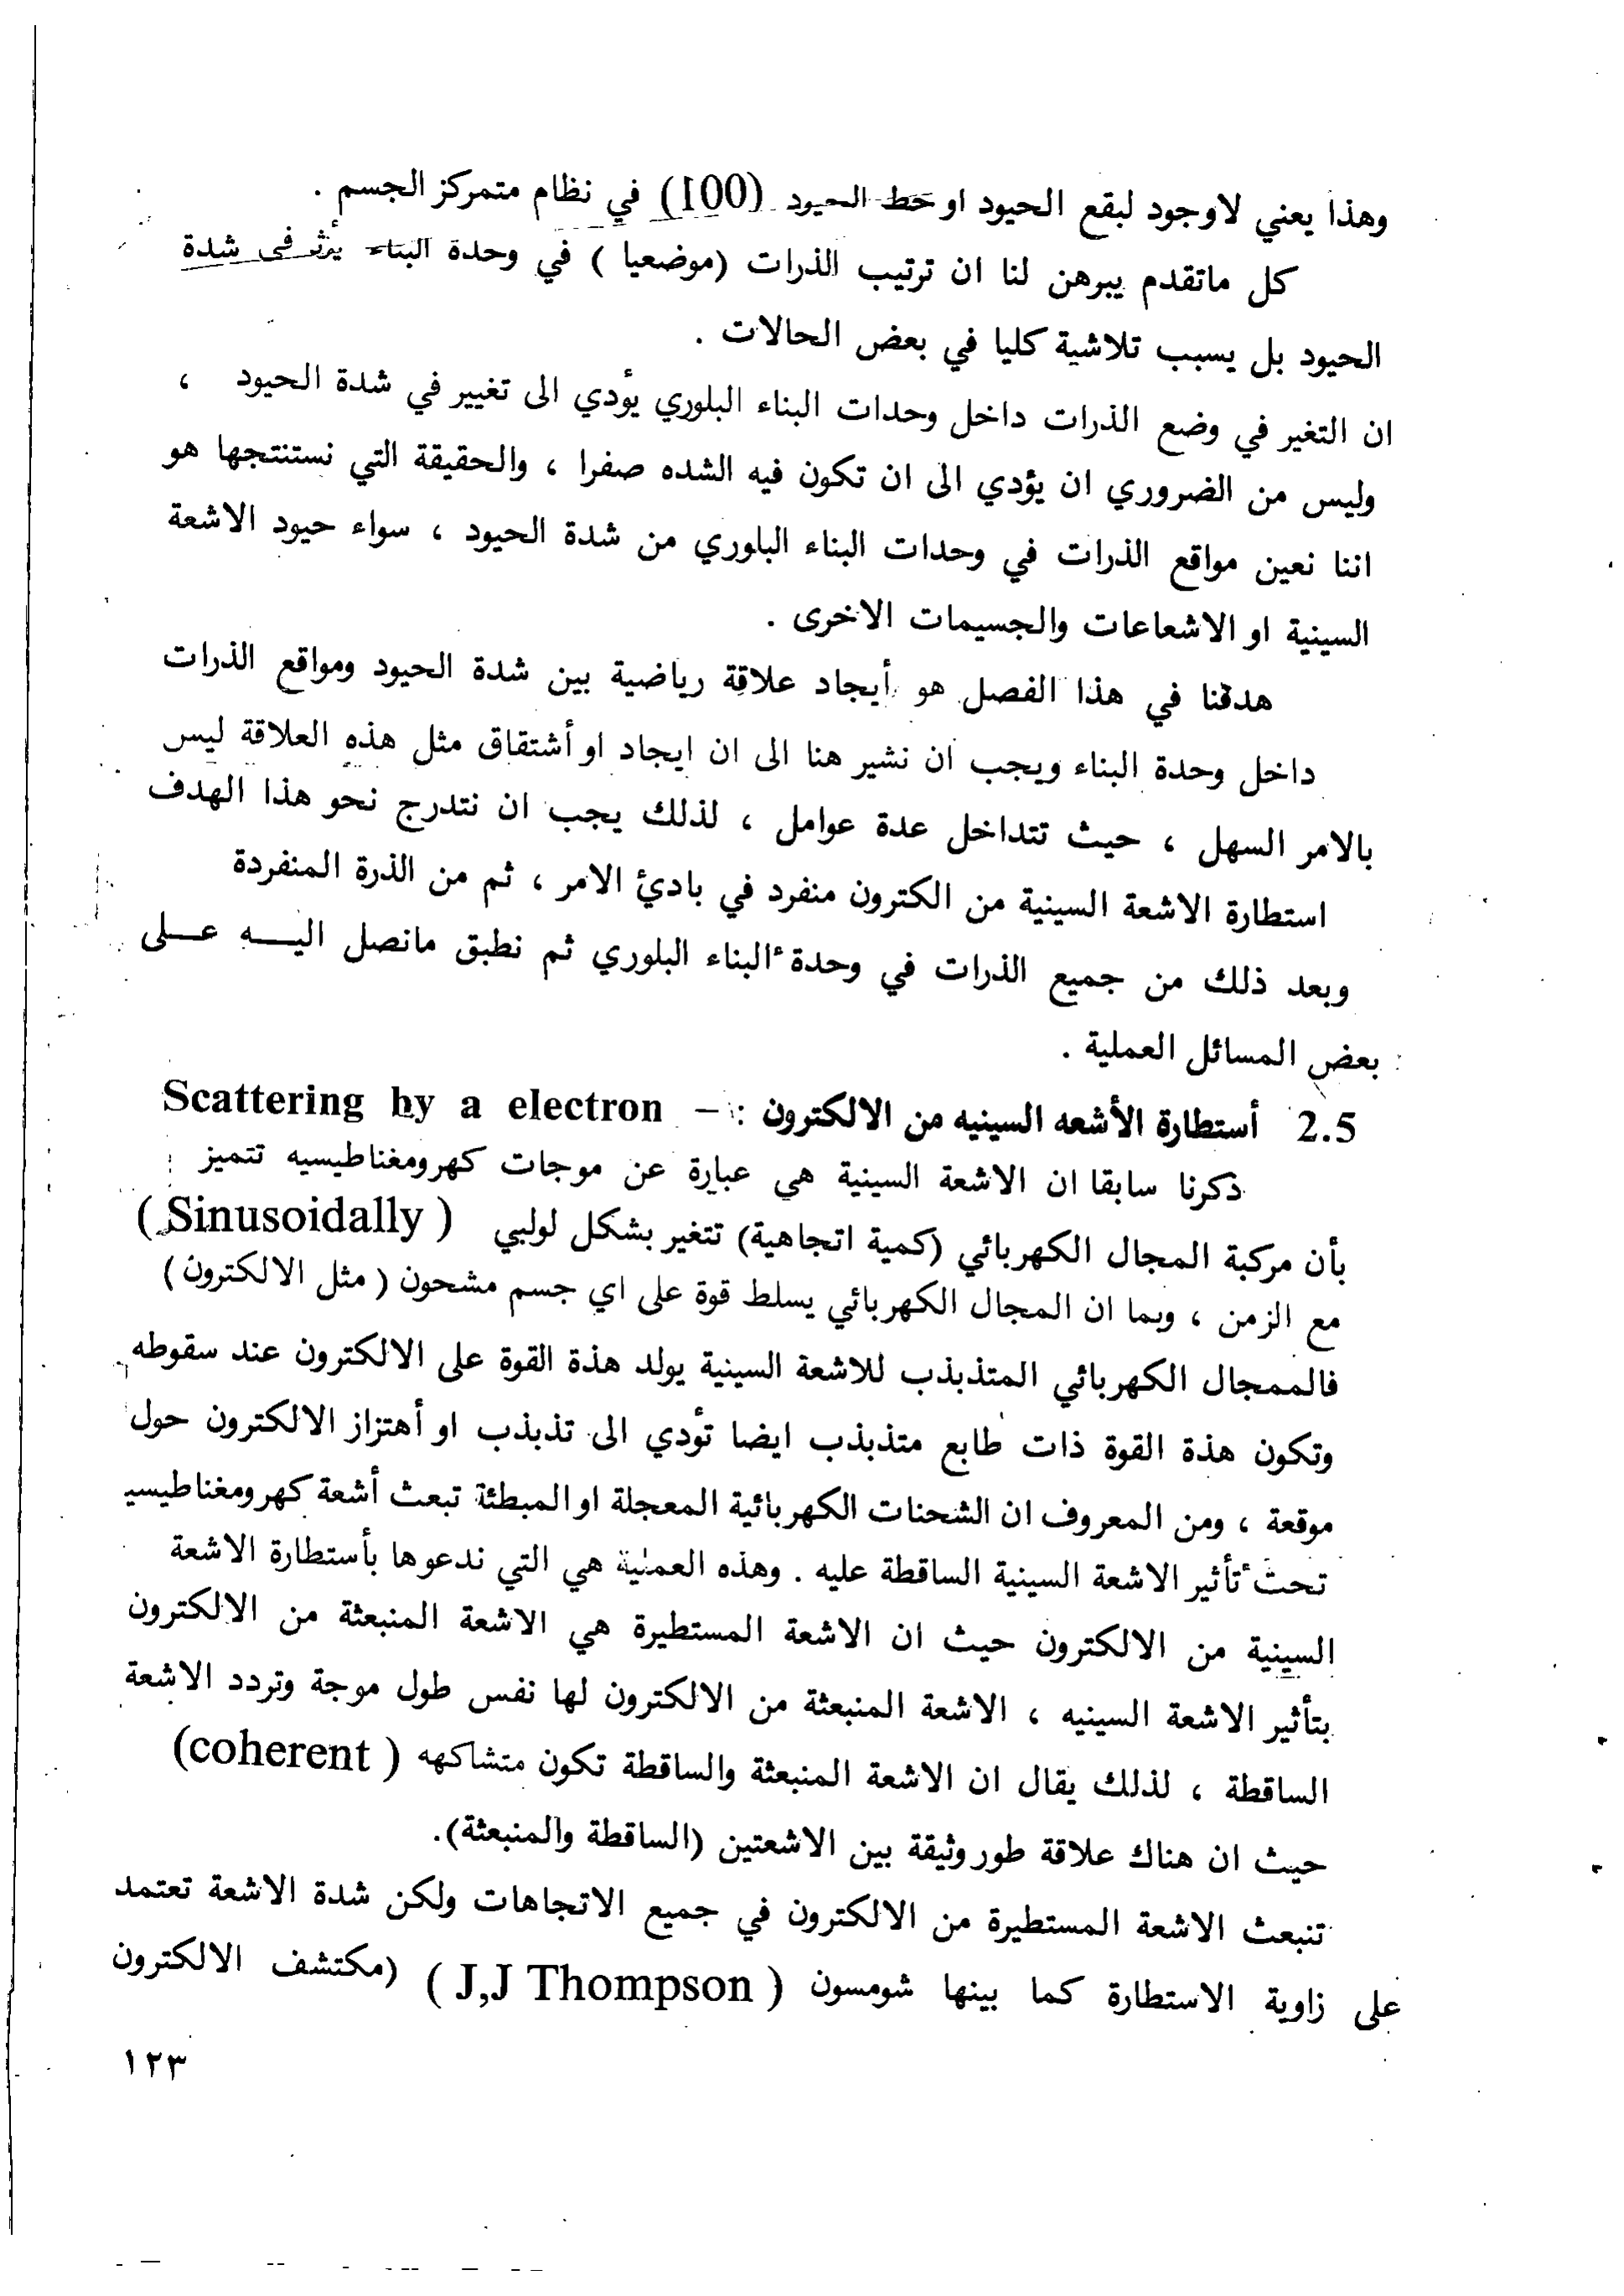 وهذا يعني لاوجود لبقع الحيود او خط الحيود (100) في نظام متمركز الجسم .
كل ماتقدم يبرهن لنا ان ترتيب الذرات (موضعيا ) في وحدة البناء يؤثر في شدة
الحيود بل يسبب تلاشية كليا في بعض الحالات .
ان التغير في وضع الذرات داخل وحدات البناء البلوري يؤدي الى تغيير في شدة الحيود ،
وليس من الضروري ان يؤدي الى ان تكون فيه الشده صفرا ، والحقيقة التي نستنتجها هو
اننا نعين مواقع الذرات في وحدات البناء البلوري من شدة الحيود ، سواء حيود الاشعة
السينية او الاشعاعات والجسيمات الاخرى .
هدفنا في هذا الفصل هو أيجاد علاقة رياضية بين شدة الحيود ومواقع الذرات
داخل وحدة البناء ويجب ان نشير هنا الى ان ايجاد او أشتقاق مثل هذه العلاقة ليس
بالامر السهل ، حيث تتداخل عدة عوامل ، لذلك يجب ان نتدرج نحو هذا الهدف
استطارة الاشعة السينية من الكترون منفرد في بادئ الامر ، ثم من الذرة المنفردة
وبعد ذلك من جميع الذرات في وحدة البناء البلوري ثم نطبق مانصل اليـــه عـــلى
بعض المسائل العملية .
2.5 أستطارة الأشعه السينيه من الالكترون : – Scattering by a electron
ذكرنا سابقا ان الاشعة السينية هي عبارة عن موجات كهرومغناطيسيه تتميز
بأن مركبة المجال الكهربائي (كمية اتجاهية) تتغير بشكل لولبي ( Sinusoidally )
مع الزمن ، وبما ان المجال الكهربائي يسلط قوة على اي جسم مشحون ( مثل الالكترون )
فالممجال الكهربائي المتذبذب للاشعة السينية يولد هذة القوة على الالكترون عند سقوطه
وتكون هذة القوة ذات طابع متذبذب ايضا تؤدي الى تذبذب او أهتزاز الالكترون حول
موقعة ، ومن المعروف ان الشحنات الكهربائية المعجلة او المبطئة تبعث أشعة كهرومغناطيسي
تحت تأثير الاشعة السينية الساقطة عليه . وهذه العملية هي التي ندعوها بأستطارة الاشعة
السينية من الالكترون حيث ان الاشعة المستطيرة هي الاشعة المنبعثة من الالكترون
بتأثير الاشعة السينيه ، الاشعة المنبعثة من الالكترون لها نفس طول موجة وتردد الاشعة
الساقطة ، لذلك يقال ان الاشعة المنبعثة والساقطة تكون متشاكهه ( coherent)
حيث ان هناك علاقة طور وثيقة بين الاشعتين (الساقطة والمنبعثة).
تنبعث الاشعة المستطيرة من الالكترون في جميع الاتجاهات ولكن شدة الاشعة تعتمد
على زاوية الاستطارة كما بينها شومسون ( J,J Thompson ) (مكتشف الالكترون
١٢٣